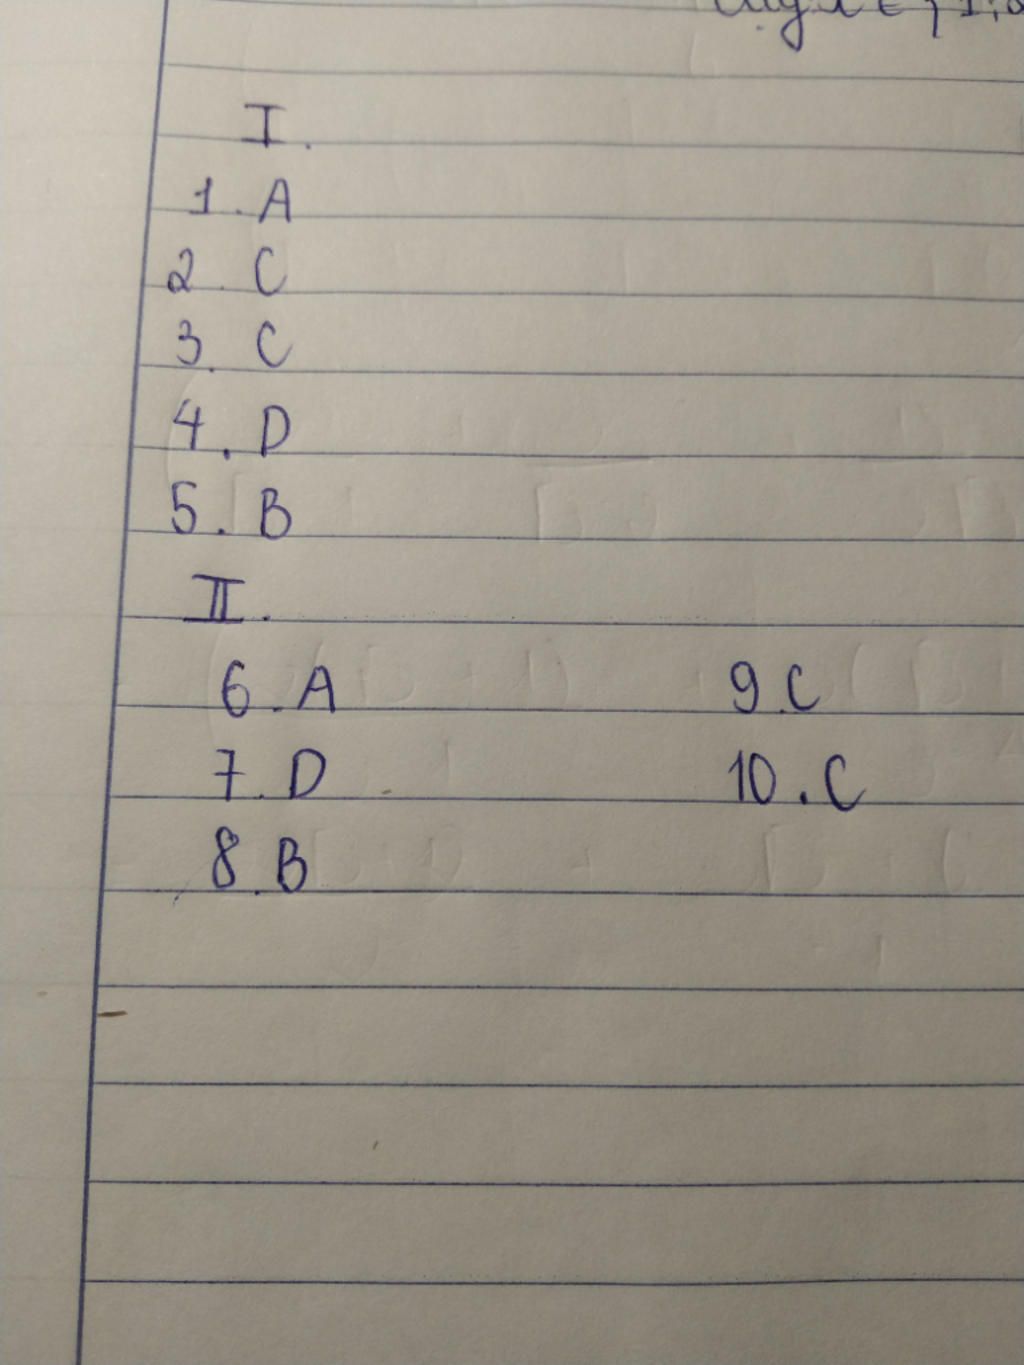 I.
1. A
2. C
3. C
4. D
5. B
II.
6. A
7. D
8. B
9. C
10. C